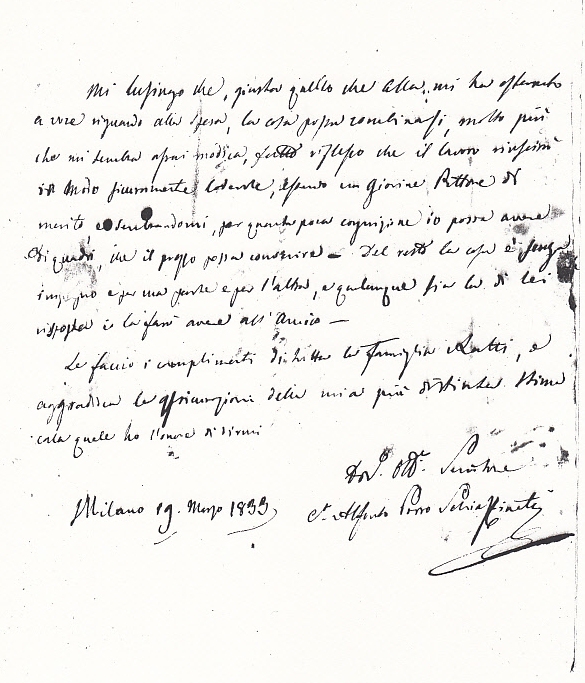 Mi lusingo che, giusta quello che Ella mi ha
a voce riguardo alla spesa, la cosa possa combinarsi, molto più
che mi sembra assai modica, fatto riflesso che il lavoro riuscirà
in modo sicuramente lodevole, essendo un Giovine Pittore di
merito e sembrandomi, per quanto poca cognizione io possa avere
di quadri, che il prezzo possa convenire — Del resto la cosa è senza
impegno e per una parte e per l'altra, e qualunque sia la di lei
risposta io la farò avere all'Amico —
Le faccio i complimenti di tutta la famiglia Ratti, e
aggradisca le assicurazioni della mia più distinta stima
colla quale ho l'onore di dirmi
Dev.º Obb.º Servitore
C.e Alfonso Porro Schiaffinati
Milano 19. Marzo 1833